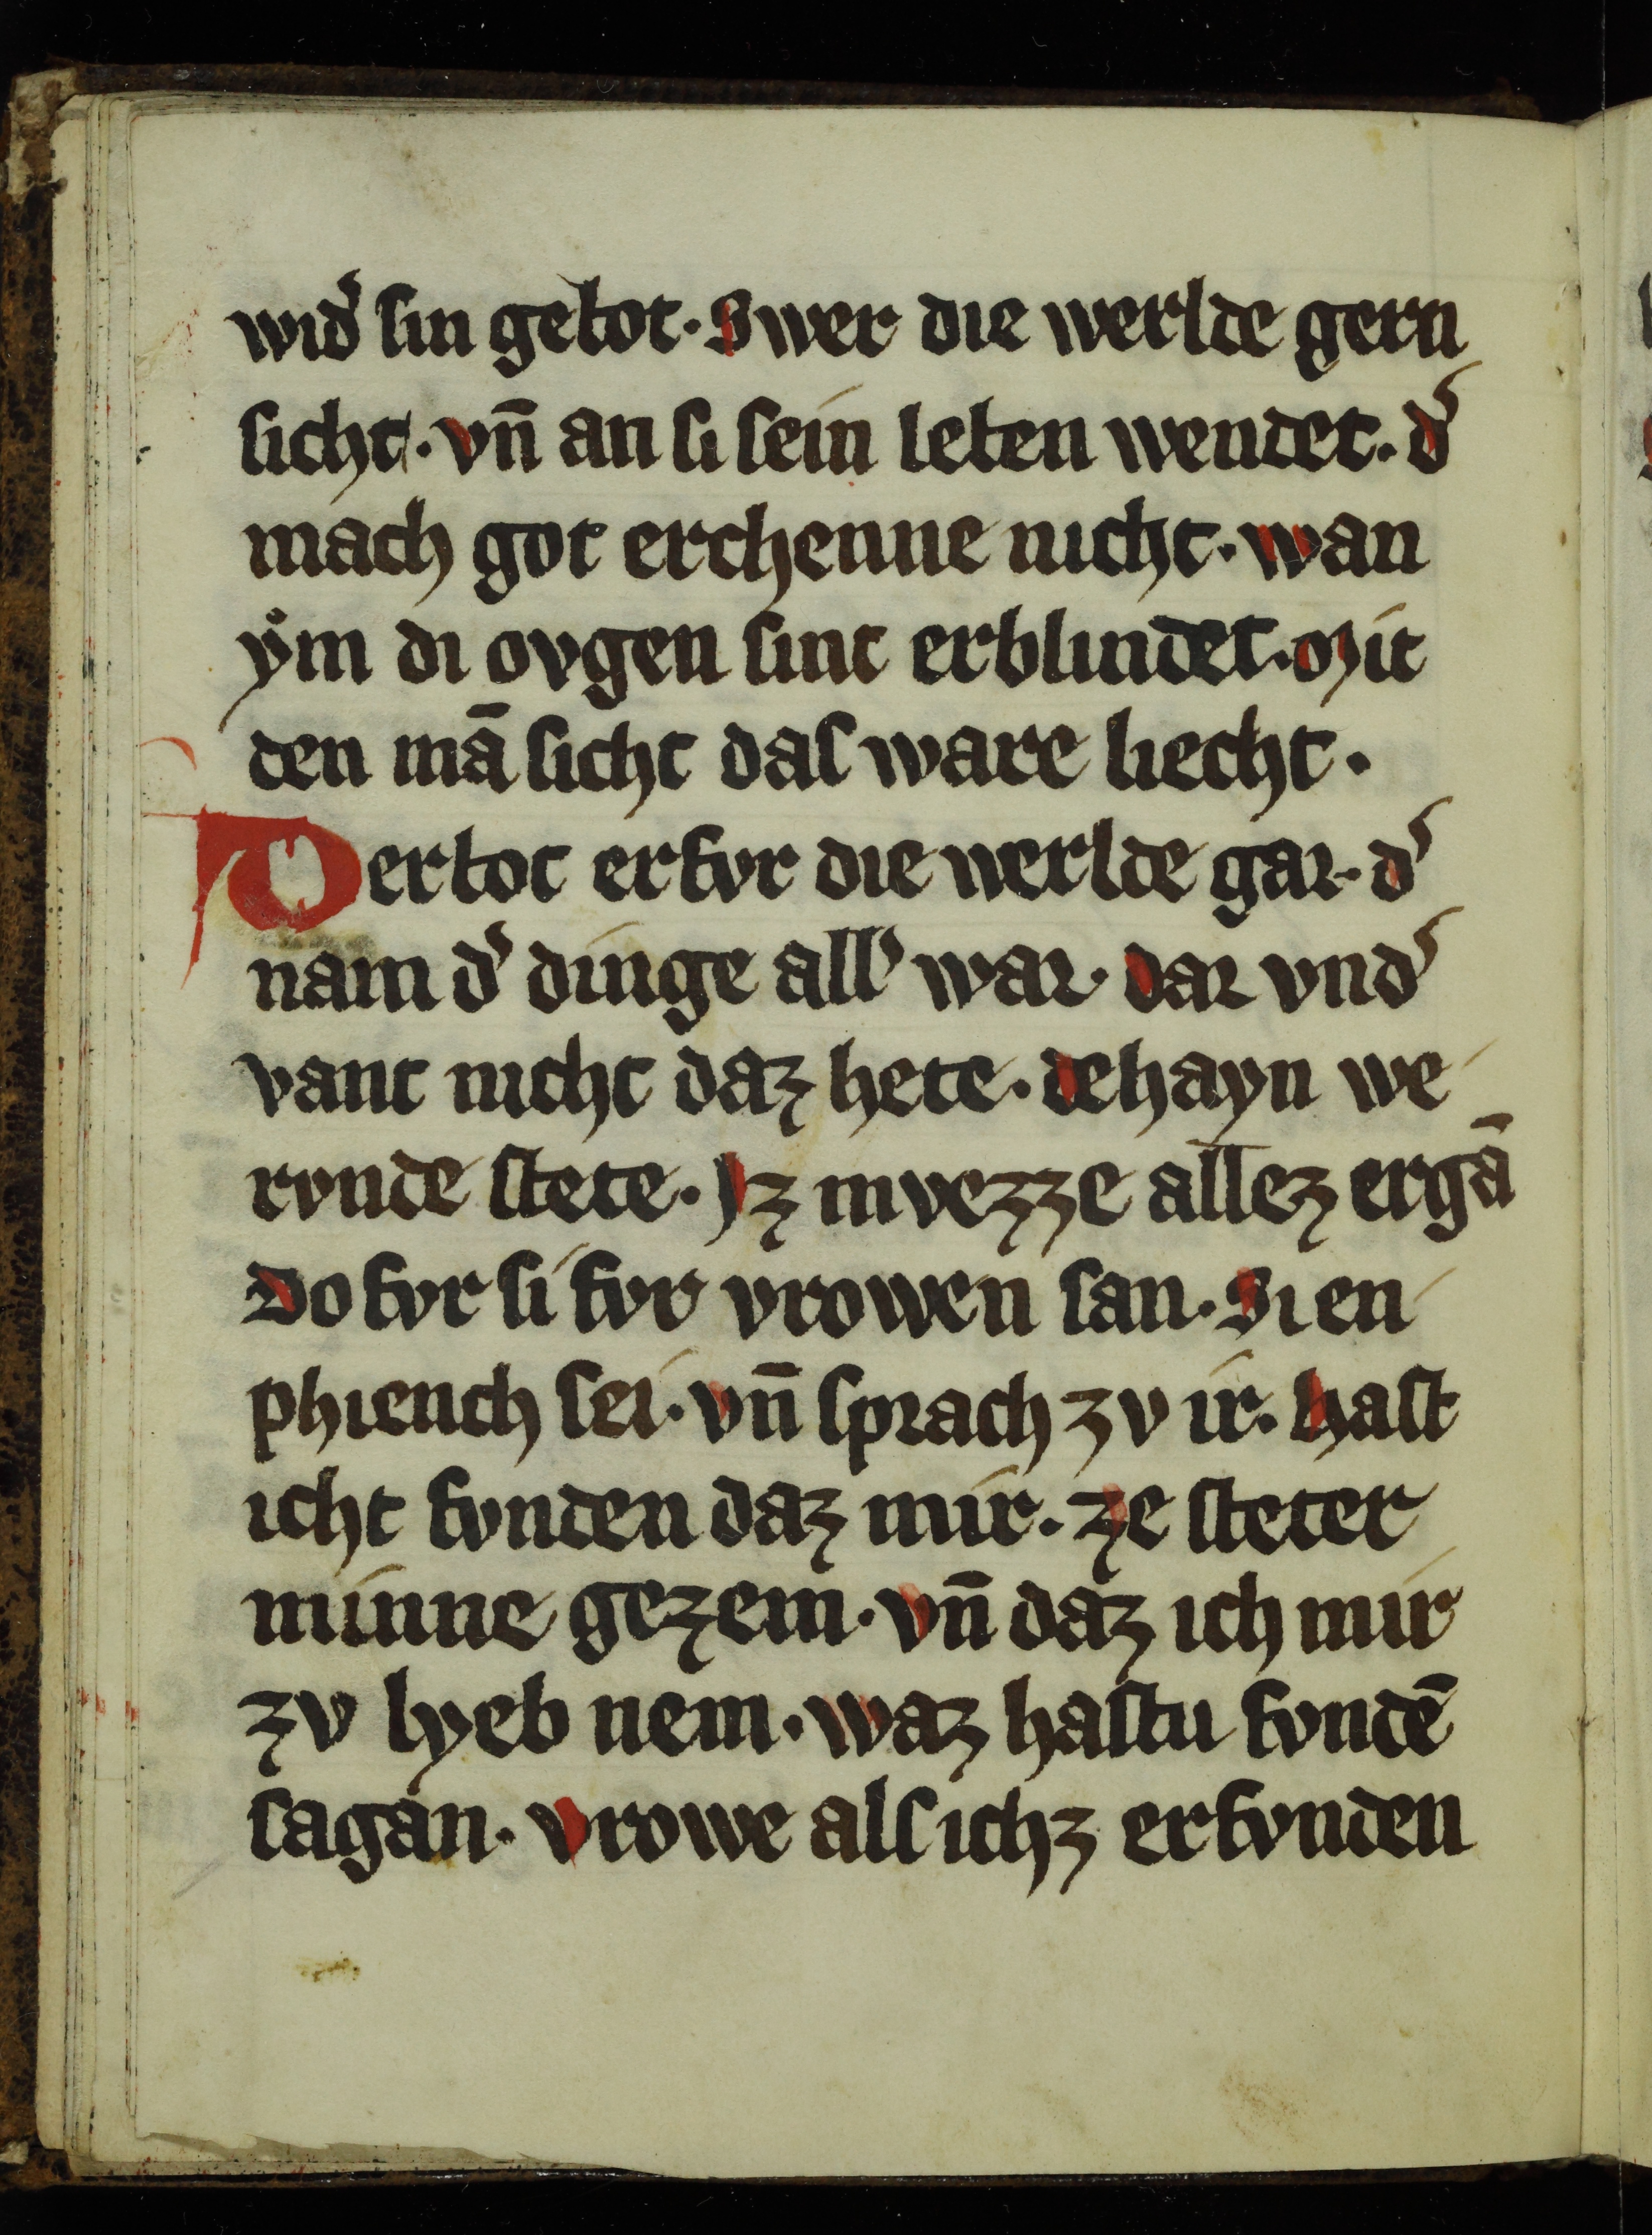 wid͛ ſin gebot · Swer die werlde gern
ſicht · vn̄ an ſi ſein leben wendet · d͛
mach got erchenne nicht · wan
ẏm di ovgen ſint erblindet · Mit
den mā ſicht daſ ware liecht ·
Der bot erfvr die werlde gar · d͛
nam d͛ dinge all͛ war · dar vnd͛
vant nicht daz hete · dehayn we
rvnde ſtete · Jz mvezze allez ergā
Do fvr ſi fvr vrowen ſan · Si en
phiench ſei · vn̄ ſprach zv ir · haſt
icht fvnden daz mir · ze ſteter
minne gezem · vn̄ daz ich mir
zv lyeb nem · waz haſtu fvndē
ſagan · vrowe alſ ichz erfvnden